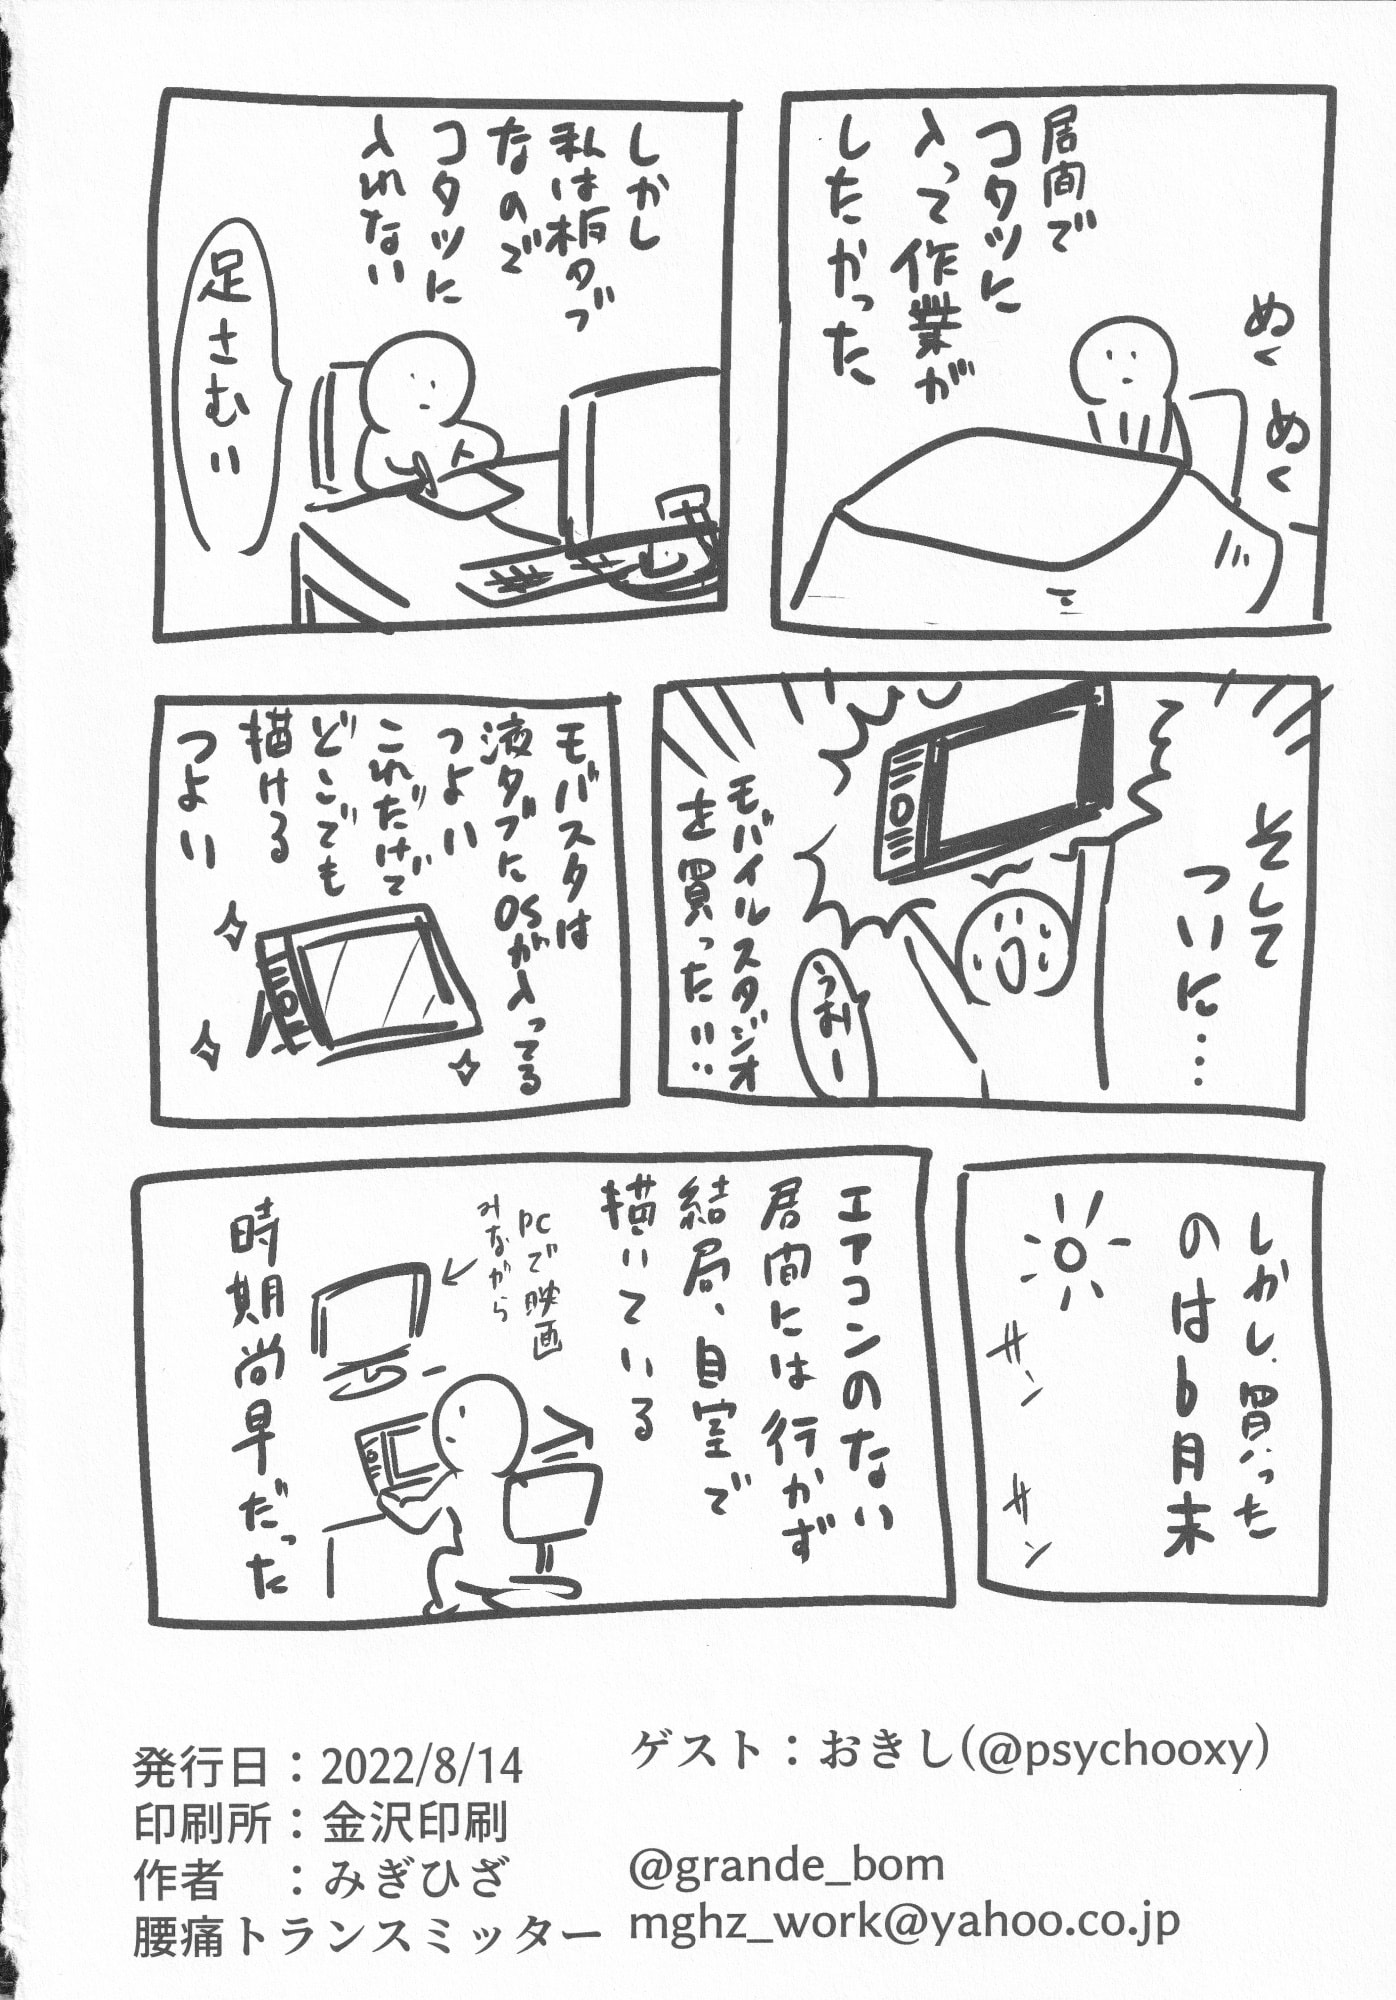 居間で
コタツに
入って作業が
したかった
ぬく
ぬく
しかし
私は板タブ
なので
コタツに
入れない
足さむい
そして
ついに…
モバイルスタジオ
を買った!!
うおー
モバスタは
液タブにOSが入ってる
つよい
これだけで
どこでも
描ける
つよい
しかし買った
のは6月末
サン
サン
エアコンのない
居間には行かず
結局、自室で
描いている
PCで映画
みながら
時期尚早だった
ゲスト：おきし(@psychooxy)
発行日：2022/8/14
印刷所：金沢印刷
作者　：みぎひざ
腰痛トランスミッター
@grande_bom
mghz_work@yahoo.co.jp